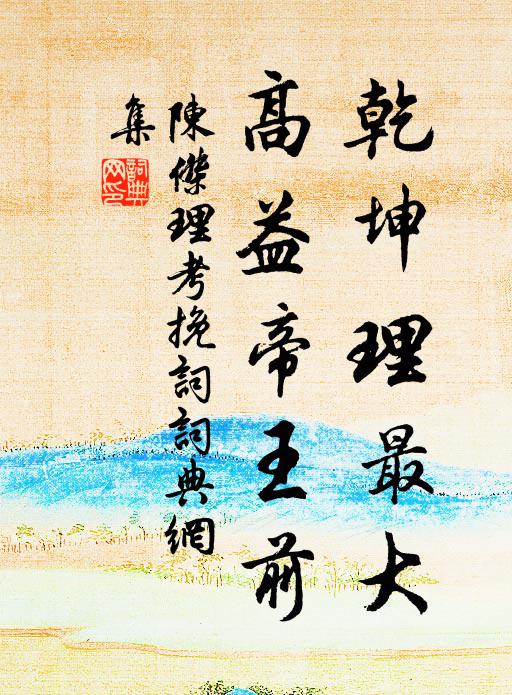 乾坤理最大
高益帝王前
陳傑理考挽詞詞典網
集
詞典網印